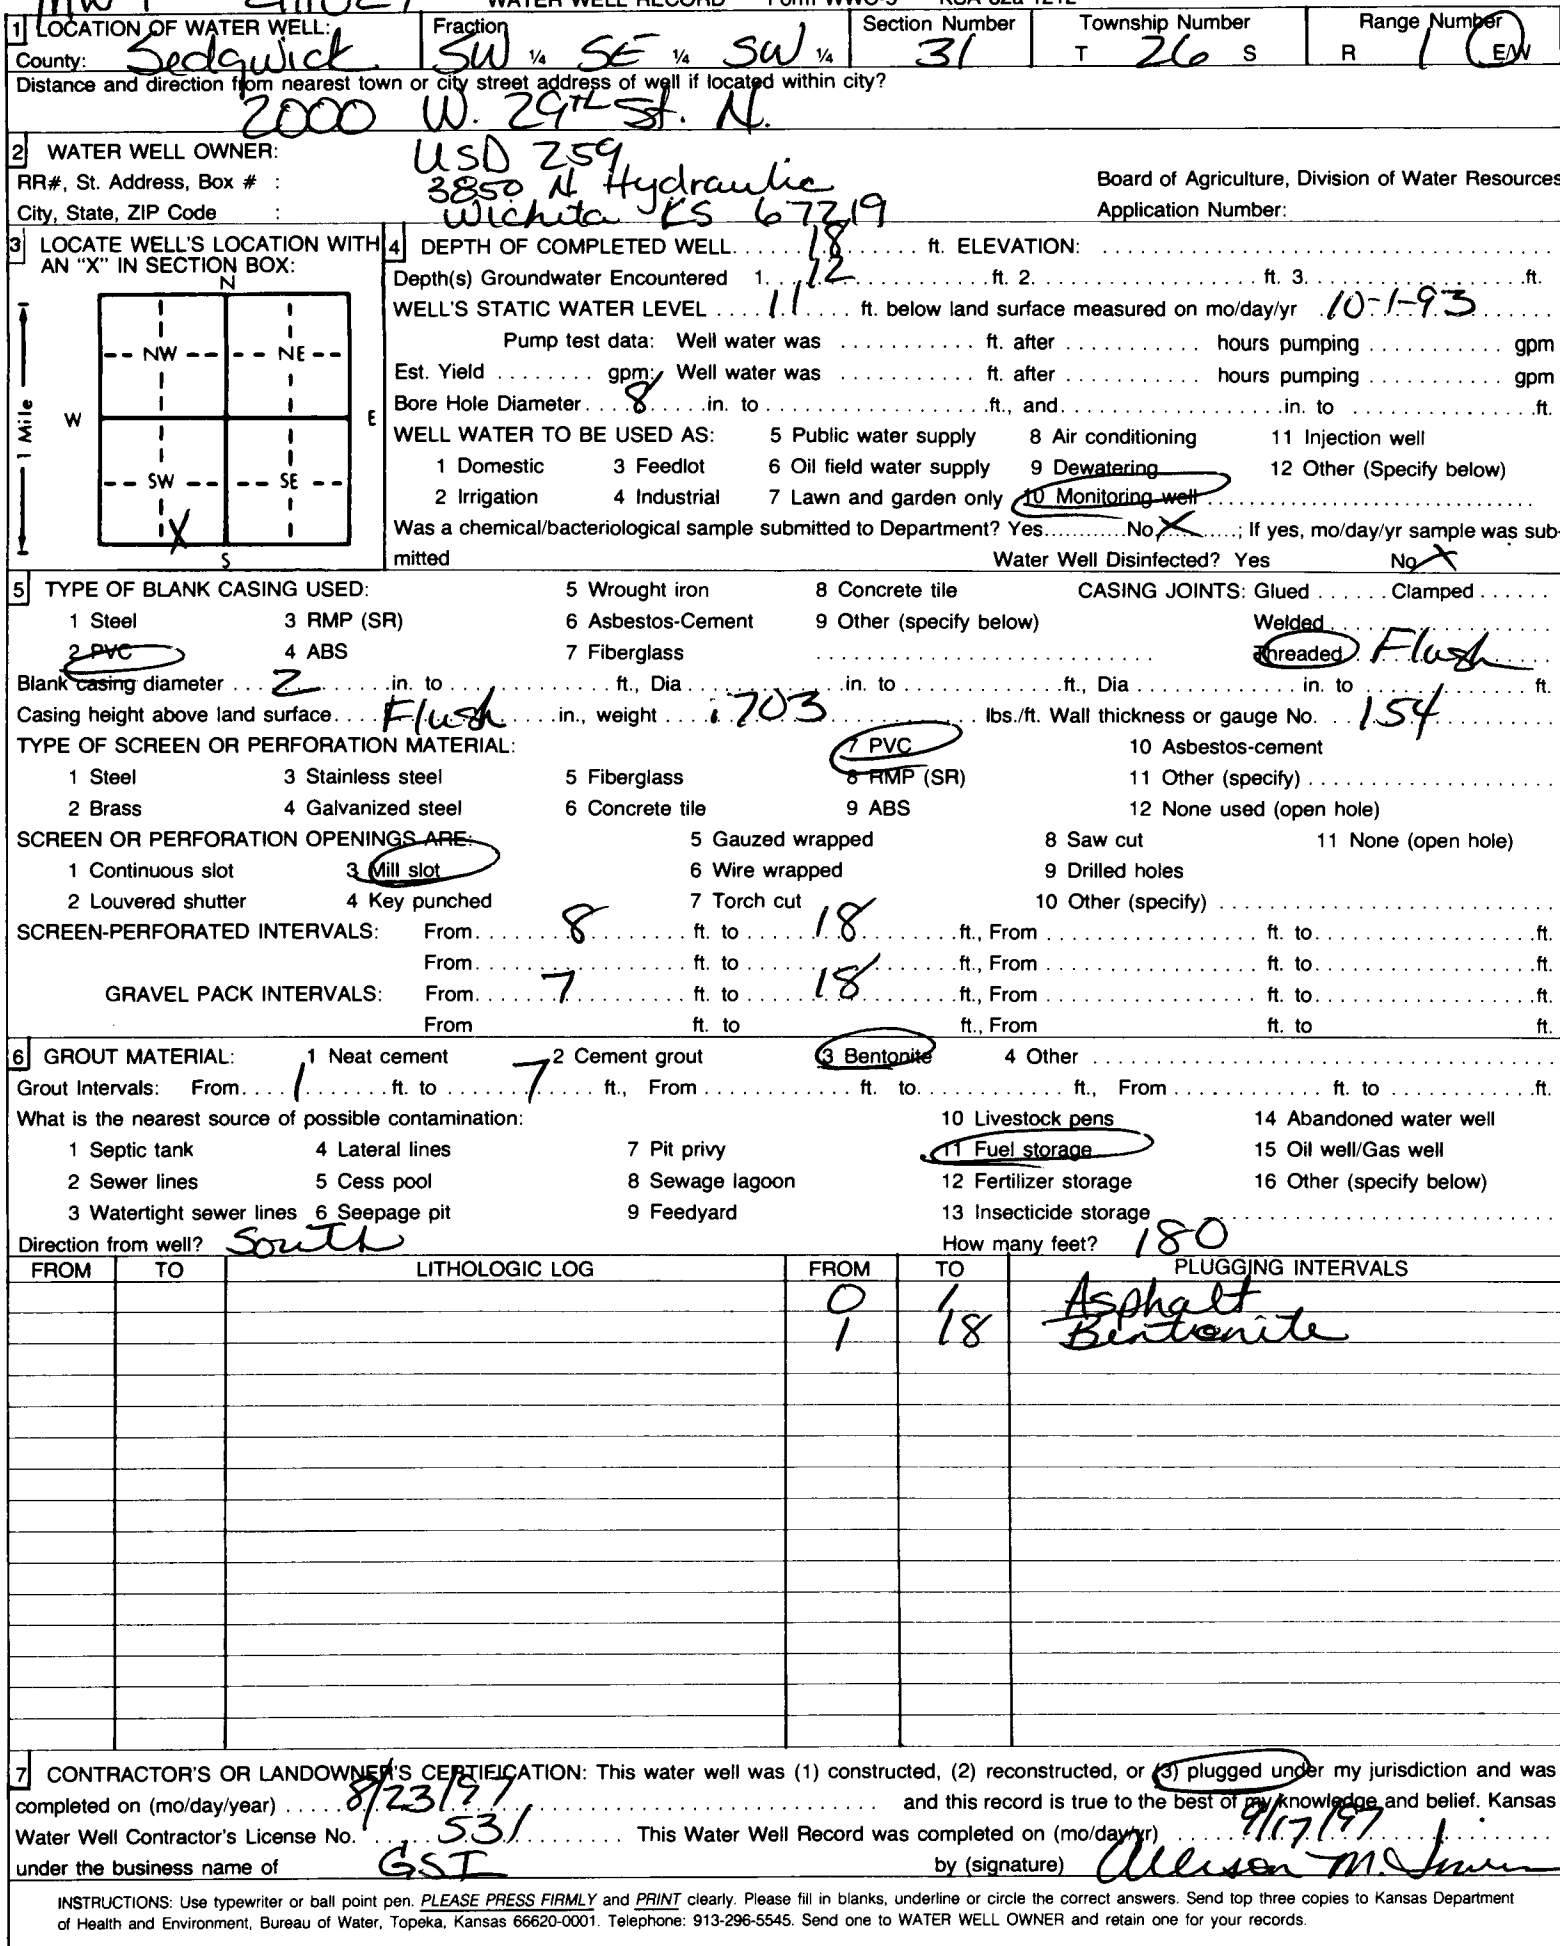 WATER WELL RECORD Form WWC-5 KSA 82a-1212
1 LOCATION OF WATER WELL: Fraction Section Number Township Number Range Number
County: Sedgwick SW ¼ SE ¼ SW ¼ 31 T 26 S R 1 E/W
Distance and direction from nearest town or city street address of well if located within city?
2000 W. 29TH St. N.
2 WATER WELL OWNER: USD 259
RR#, St. Address, Box # : 3850 N Hydraulic Board of Agriculture, Division of Water Resources
City, State, ZIP Code : Wichita KS 67219 Application Number:
3 LOCATE WELL'S LOCATION WITH AN "X" IN SECTION BOX:
N
NW NE
W E
SW SE
X
S
1 Mile
4 DEPTH OF COMPLETED WELL 18 ft. ELEVATION:
Depth(s) Groundwater Encountered 1. 12 ft. 2. ft. 3. ft.
WELL'S STATIC WATER LEVEL 11 ft. below land surface measured on mo/day/yr 10-1-93
Pump test data: Well water was ft. after hours pumping gpm
Est. Yield gpm: Well water was ft. after hours pumping gpm
Bore Hole Diameter 8 in. to ft., and in. to ft.
WELL WATER TO BE USED AS: 5 Public water supply 8 Air conditioning 11 Injection well
1 Domestic 3 Feedlot 6 Oil field water supply 9 Dewatering 12 Other (Specify below)
2 Irrigation 4 Industrial 7 Lawn and garden only 10 Monitoring well
Was a chemical/bacteriological sample submitted to Department? Yes No X ; If yes, mo/day/yr sample was sub-
mitted Water Well Disinfected? Yes No X
5 TYPE OF BLANK CASING USED: 5 Wrought iron 8 Concrete tile CASING JOINTS: Glued Clamped
1 Steel 3 RMP (SR) 6 Asbestos-Cement 9 Other (specify below) Welded
2 PVC 4 ABS 7 Fiberglass Threaded Flush
Blank casing diameter 2 in. to ft., Dia in. to ft., Dia in. to ft.
Casing height above land surface Flush in., weight .703 lbs./ft. Wall thickness or gauge No. .154
TYPE OF SCREEN OR PERFORATION MATERIAL: 7 PVC 10 Asbestos-cement
1 Steel 3 Stainless steel 5 Fiberglass 8 RMP (SR) 11 Other (specify)
2 Brass 4 Galvanized steel 6 Concrete tile 9 ABS 12 None used (open hole)
SCREEN OR PERFORATION OPENINGS ARE: 5 Gauzed wrapped 8 Saw cut 11 None (open hole)
1 Continuous slot 3 Mill slot 6 Wire wrapped 9 Drilled holes
2 Louvered shutter 4 Key punched 7 Torch cut 10 Other (specify)
SCREEN-PERFORATED INTERVALS: From 8 ft. to 18 ft., From ft. to ft.
From ft. to ft., From ft. to ft.
GRAVEL PACK INTERVALS: From 7 ft. to 18 ft., From ft. to ft.
From ft. to ft., From ft. to ft.
6 GROUT MATERIAL: 1 Neat cement 2 Cement grout 3 Bentonite 4 Other
Grout Intervals: From 1 ft. to 7 ft., From ft. to ft., From ft. to ft.
What is the nearest source of possible contamination: 10 Livestock pens 14 Abandoned water well
1 Septic tank 4 Lateral lines 7 Pit privy 11 Fuel storage 15 Oil well/Gas well
2 Sewer lines 5 Cess pool 8 Sewage lagoon 12 Fertilizer storage 16 Other (specify below)
3 Watertight sewer lines 6 Seepage pit 9 Feedyard 13 Insecticide storage
Direction from well? South How many feet? 180
FROM TO LITHOLOGIC LOG FROM TO PLUGGING INTERVALS
0 1 Asphalt
1 18 Bentonite
7 CONTRACTOR'S OR LANDOWNER'S CERTIFICATION: This water well was (1) constructed, (2) reconstructed, or (3) plugged under my jurisdiction and was
completed on (mo/day/year) 8/23/97 and this record is true to the best of my knowledge and belief. Kansas
Water Well Contractor's License No. 531 This Water Well Record was completed on (mo/day/yr) 9/17/97
under the business name of GSI by (signature) Allison M.
INSTRUCTIONS: Use typewriter or ball point pen. PLEASE PRESS FIRMLY and PRINT clearly. Please fill in blanks, underline or circle the correct answers. Send top three copies to Kansas Department
of Health and Environment, Bureau of Water, Topeka, Kansas 66620-0001. Telephone: 913-296-5545. Send one to WATER WELL OWNER and retain one for your records.